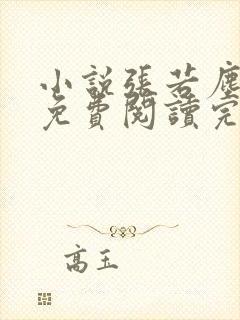 小說張若塵
免費閱讀完
高玉